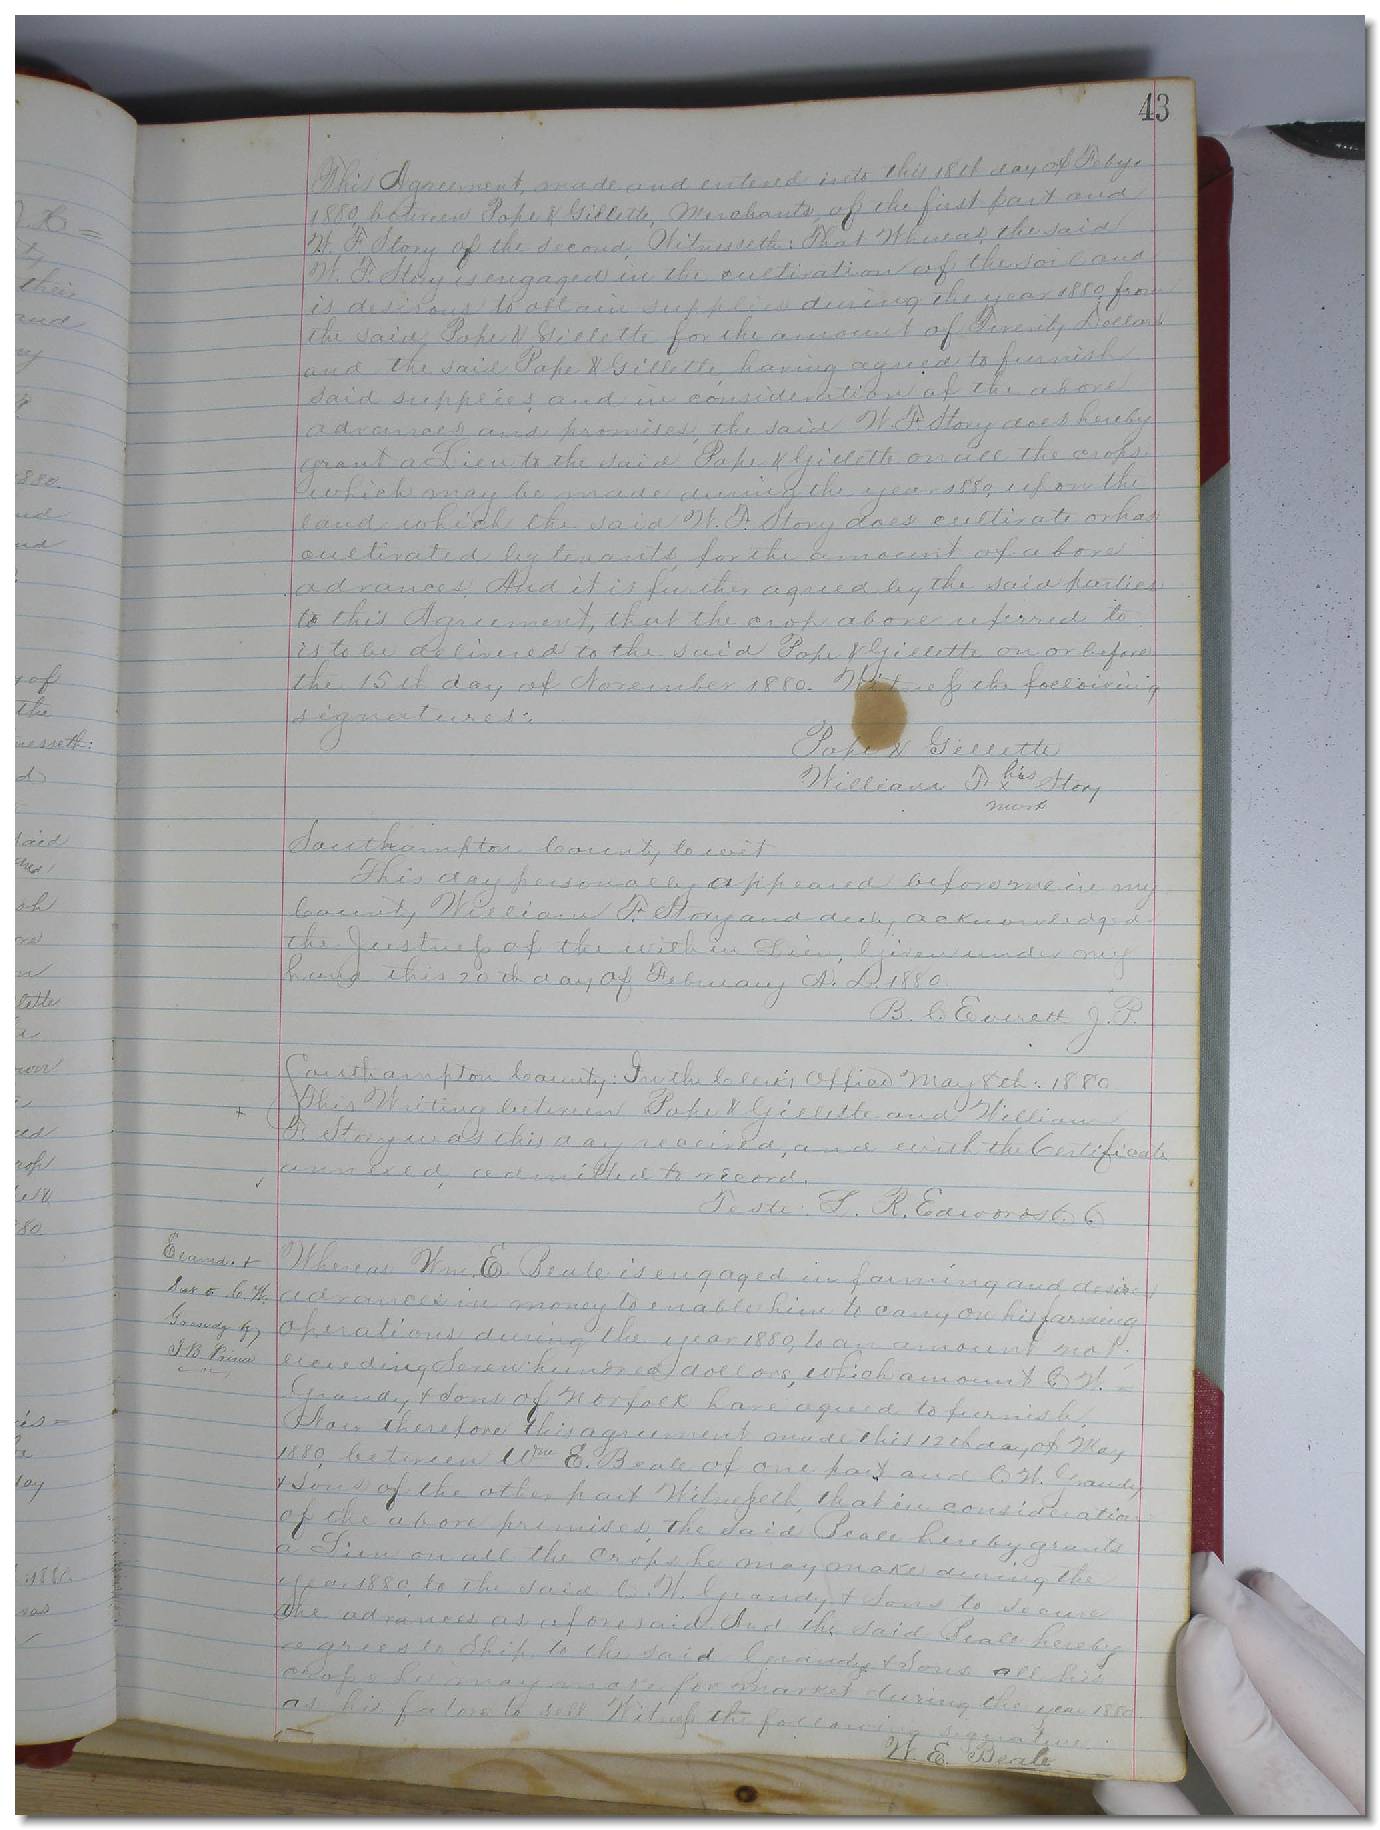 43
This Agreement, made and entered into this 18th day of Feby.
1880, between Pope & Gillette, Merchants, of the first part and
W. F. Story of the second, Witnesseth: That Whereas, the said
W. F. Story is engaged in the cultivation of the soil and
is desirous to obtain supplies during the year 1880 from
the said Pope & Gillette for the amount of Dollars
and the said Pope & Gillette, having agreed to furnish
said supplies, and in consideration of the above
advances and promises, the said W. F. Story does hereby
grant a Lien to the said Pope & Gillette on all the crops
which may be made during the year 1880, upon the
land which the said W. F. Story does cultivate or has
cultivated by tenants, for the amount of above
advances. And it is further agreed by the said parties
to this Agreement, that the crop above referred to
is to be delivered to the said Pope & Gillette on or before
the 15th day of November 1880. Witness the following
signatures:
Pope & Gillette
William F. his x mark Story
Southampton County, to wit
This day personally appeared before me in my
County, William F. Story and duly acknowledged
the Justness of the within Lien, Given under my
hand this 20th day of February A. D. 1880.
B. C. Everett J. P.
Southampton County: In the Clerk's Office May 8th: 1880
This Writing between Pope & Gillette and William
F. Story was this day received, and with the Certificate
annexed, admitted to record.
Teste: L. R. Edwards C. C
Examd. &
C. W.
Grandy by
J B Prince
Whereas Wm. E. Beale is engaged in farming and desires
advances in money to enable him to carry on his farming
operations during the year 1880, to an amount not
exceeding Seven hundred dollars, which amount C. W.
Grandy & Sons of Norfolk have agreed to furnish.
Now therefore this agreement made this 12th day of May
1880, between Wm E. Beale of one part and C. W. Grandy
& Sons of the other part Witnesseth, that in consideration
of the above premises, the said Beale hereby grants
a Lien on all the crops he may make during the
year 1880, to the said C. W. Grandy & Sons to secure
the advances as aforesaid And the said Beale hereby
agrees to Ship to the said Grandy & Sons all his
crops he may make for market during the year 1880
as his factors to sell Witness the following signature.
W. E. Beale